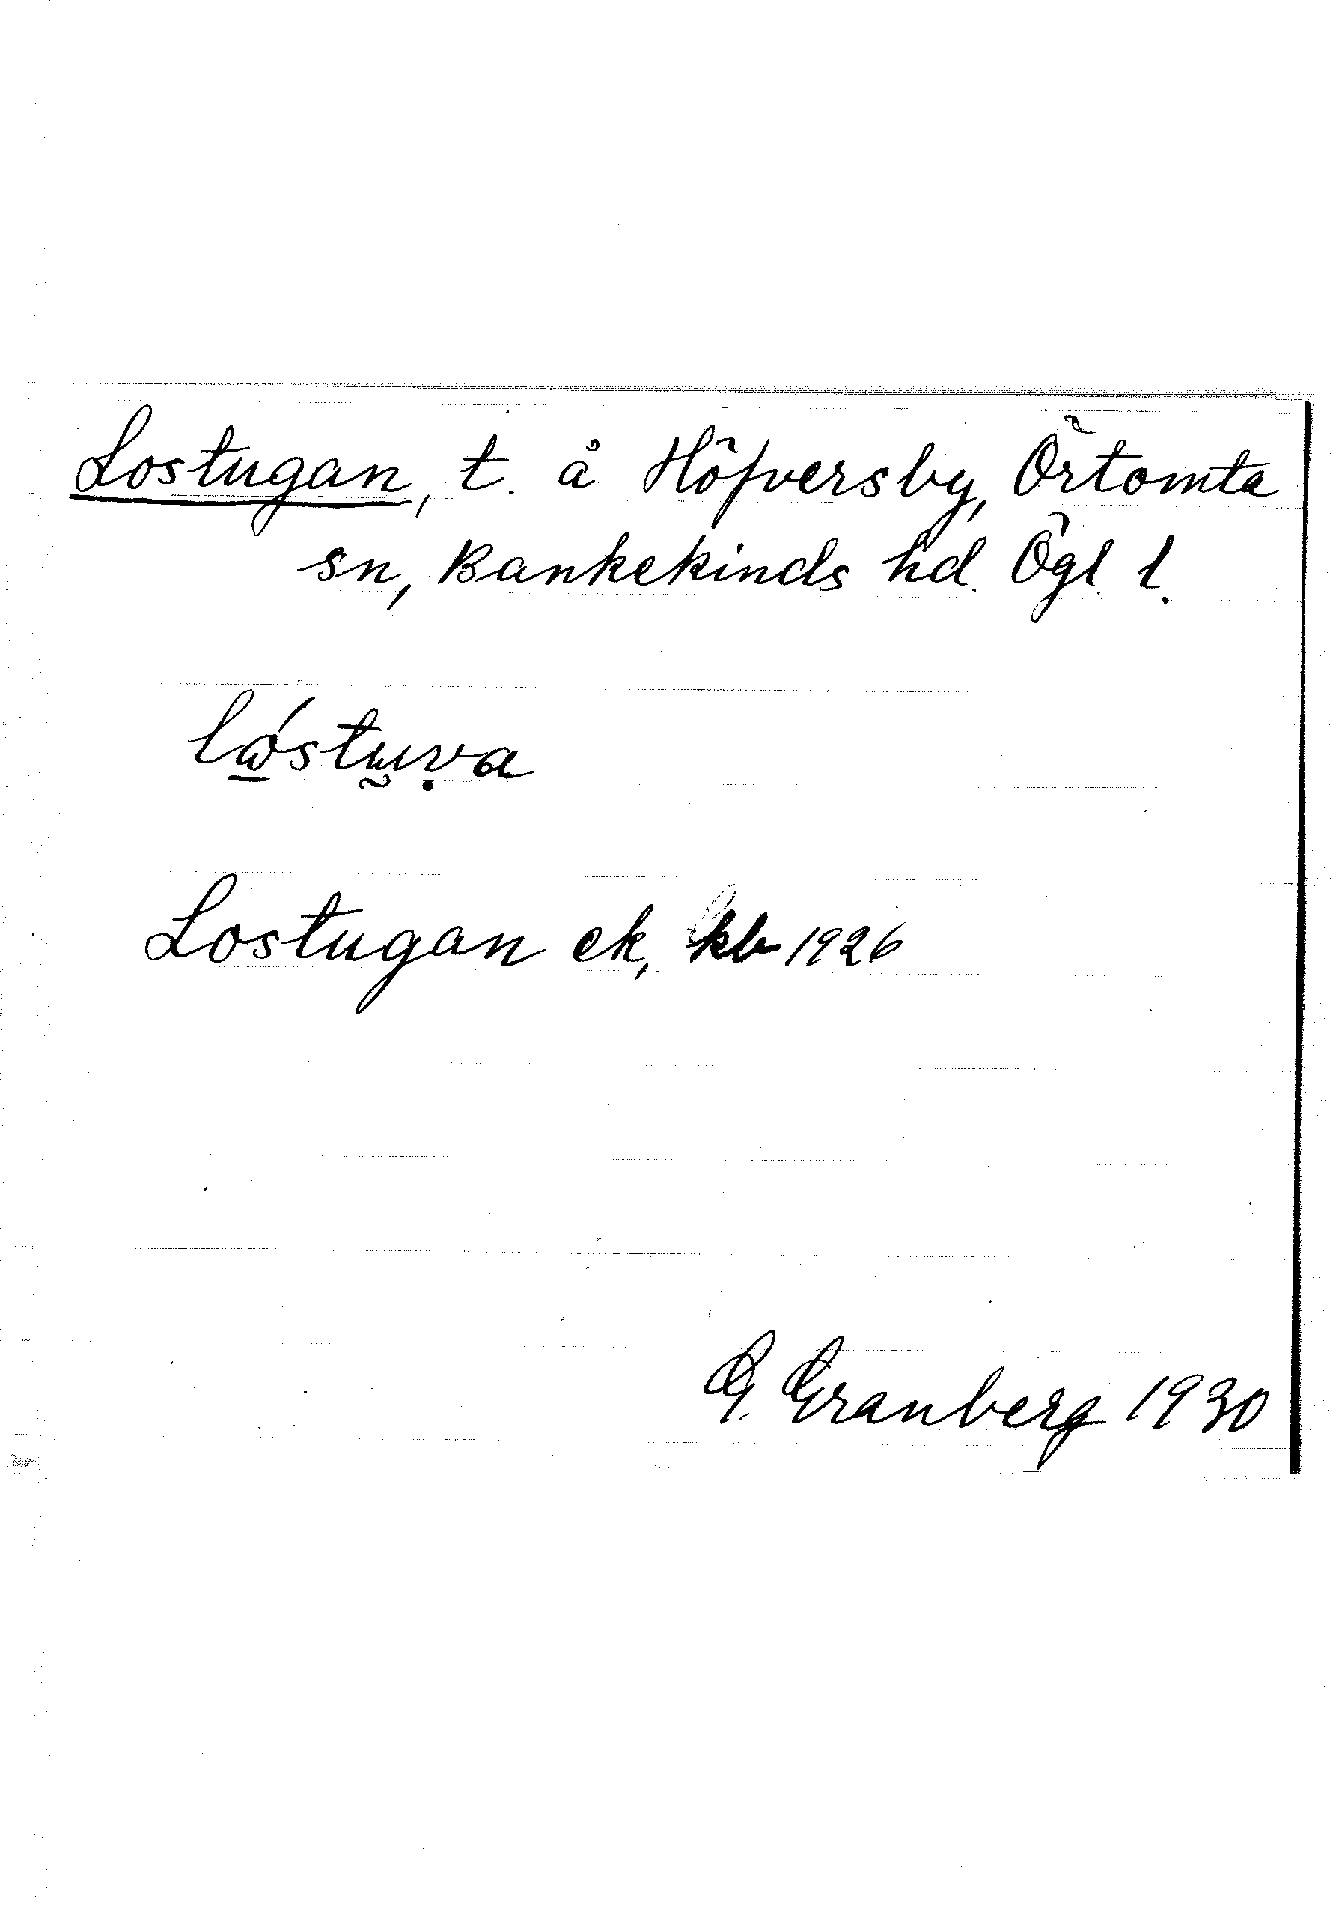 Lostugan, t. å Höfversby, Örtomta
sn, Bankekinds hd. Ögl. l.
lóstuva
Lostugan ek, kb 1926
G. Granberg 1930